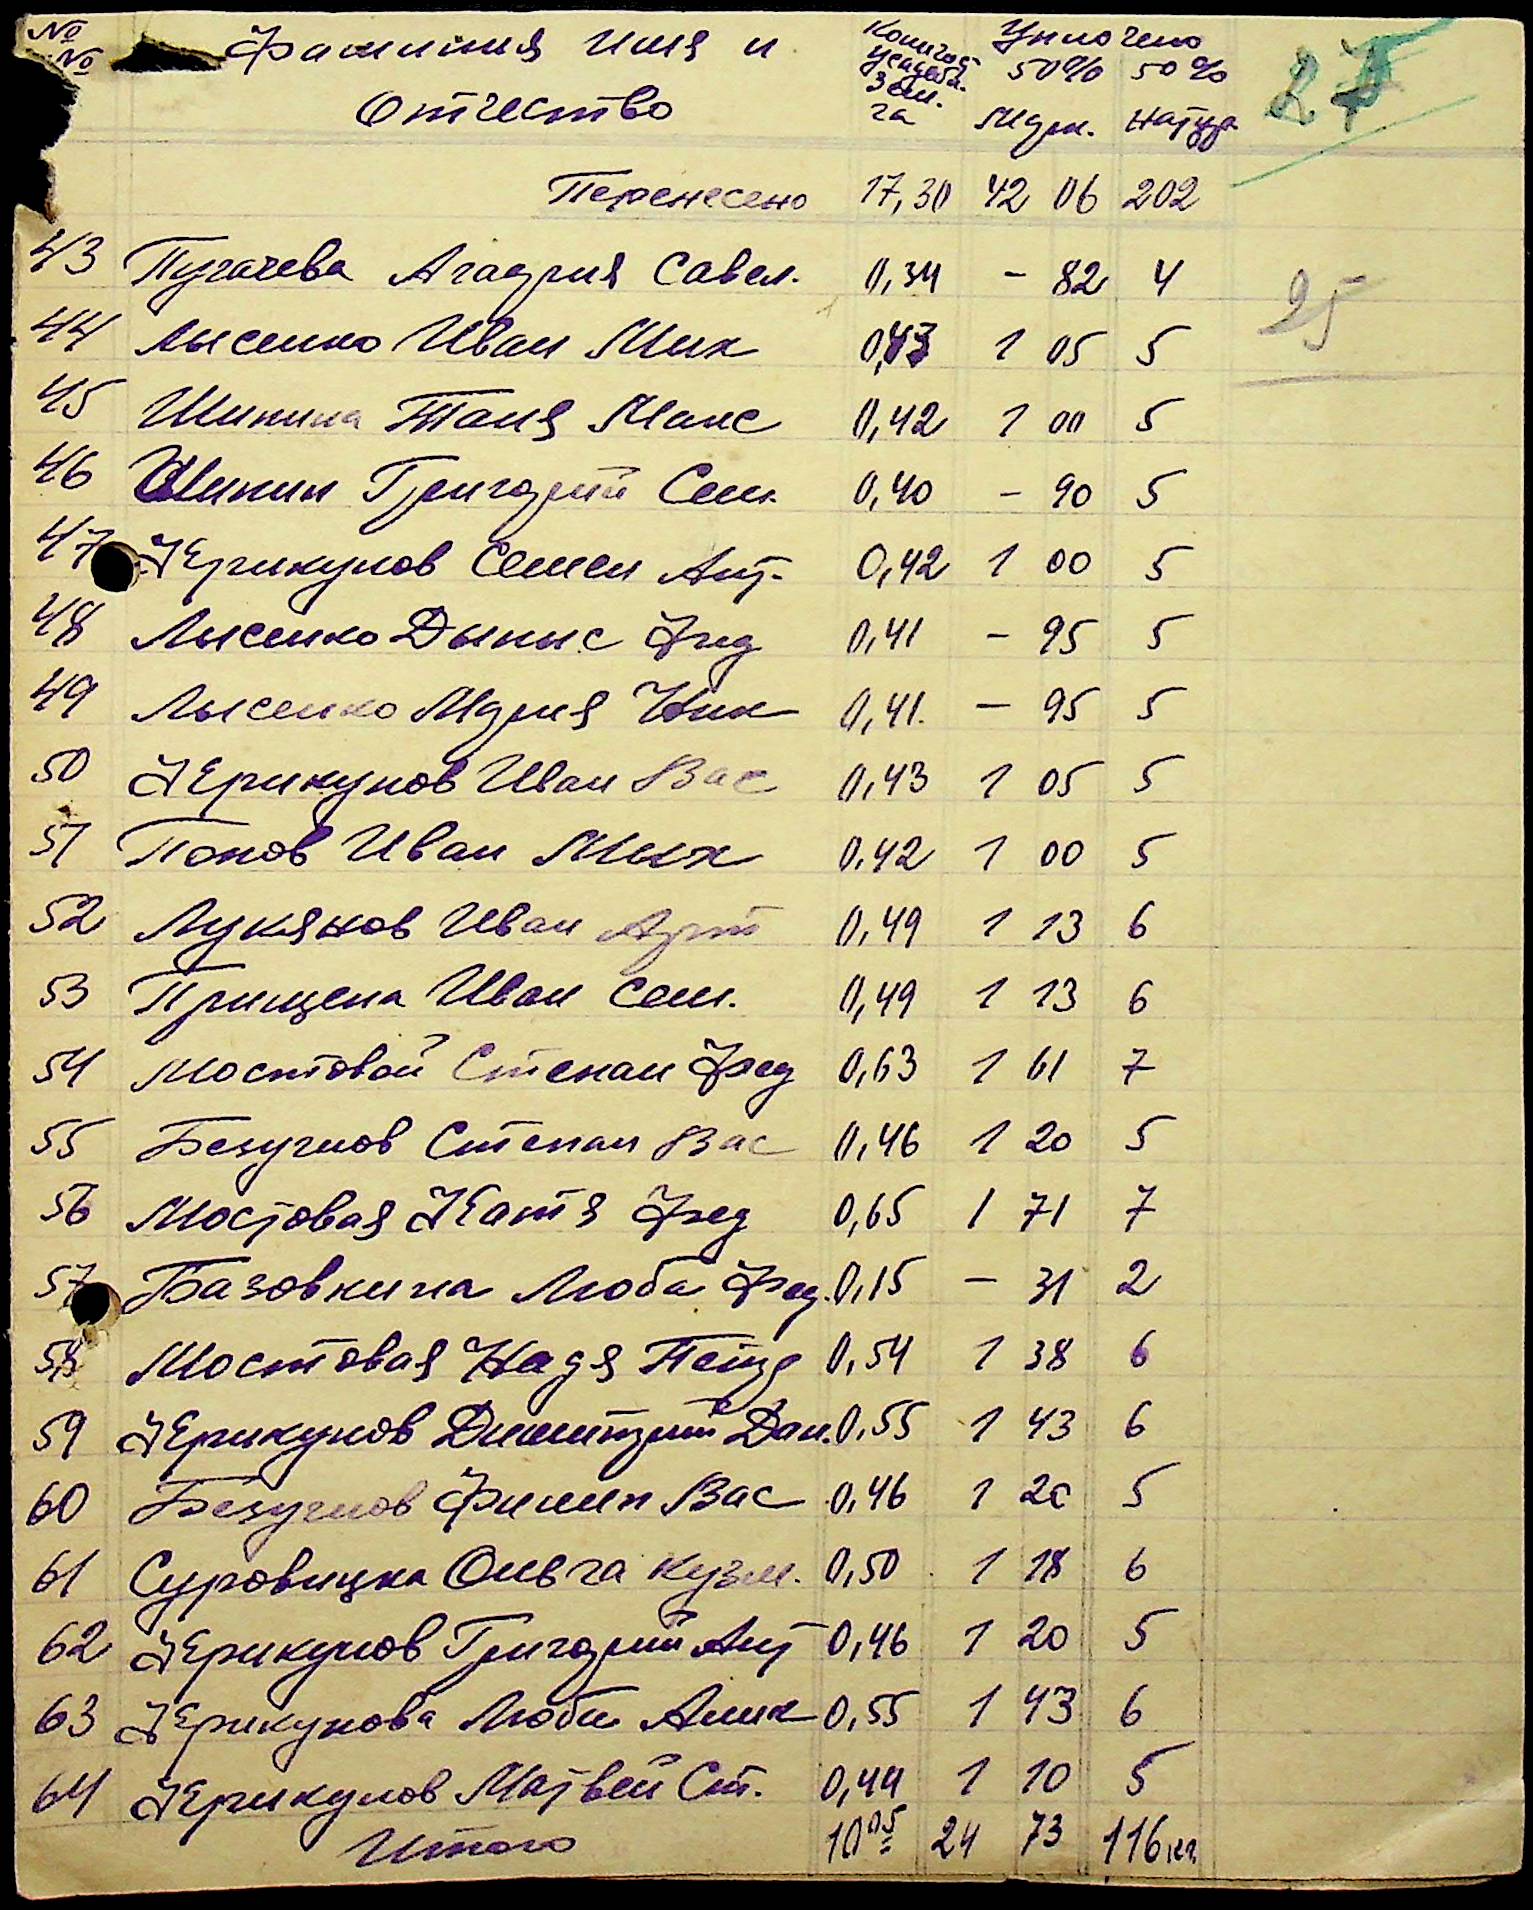 № Фамилия имя и Количес. Уплочено
№ усадебн. 50% 50%
Отчество зем. га Марк. Натур.
27
Перенесено 17,30 42 06 202
43 Пугачева Агафия Савел. 0,34 – 82 4
25
44 Лысенко Иван Мих 0,43 1 05 5
45 Шипила Таня Макс 0,42 1 00 5
46 Шипил Григорий Сем. 0,40 – 90 5
47 Керикулов Семен Ант. 0,42 1 00 5
48 Лысенко Дынис Фед 0,41 – 95 5
49 Лысенко Мария Ник 0,41. – 95 5
50 Керикулов Иван Вас 0,43 1 05 5
51 Попов Иван Мих 0,42 1 00 5
52 Лукянов Иван Арт 0,49 1 13 6
53 Прищепа Иван Сем. 0,49 1 13 6
54 Мостовой Степан Фед 0,63 1 61 7
55 Безуглов Степан Вас 0,46 1 20 5
56 Мостовая Катя Фед 0,65 1 71 7
57 Базовкина Люба Фед. 0,15 – 31 2
58 Мостовая Надя Петр 0,54 1 38 6
59 Керикулов Димитрий Дан. 0,55 1 43 6
60 Безуглов Филип Вас 0,46 1 20 5
61 Суровицка Ольга Кузм. 0,50 1 18 6
62 Керикулов Григорий Ант 0,46 1 20 5
63 Керикулова Люби 0,55 1 43 6
64 Керикулов Матвей Ст. 0,44 1 10 5
Итого 10 05 24 73 116 кг.